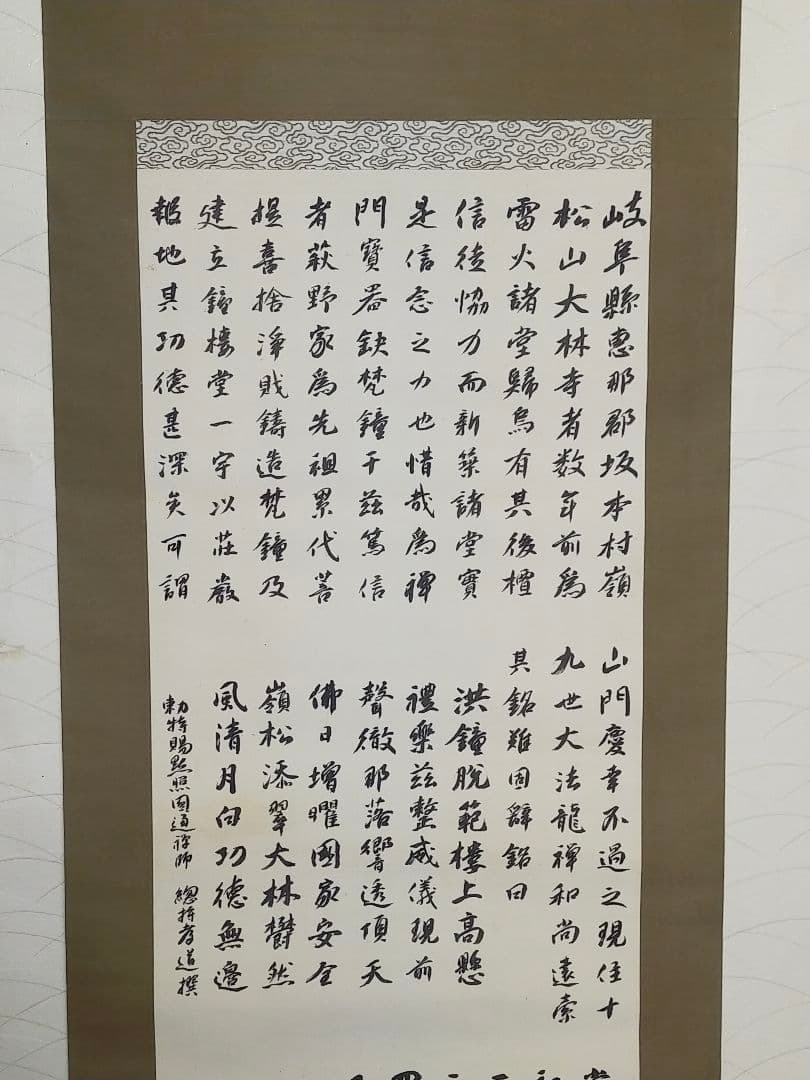 岐阜縣惠那郡坂本村嶺
松山大林寺者数年前為
雷火諸堂歸烏有其後檀
信徒恊力而新築諸堂實
是信念之力也惜哉為禅
門寶器缺梵鐘于茲篤信
者萩野家為先祖累代菩
提喜捨浄財鑄造梵鐘及
建立鐘樓堂一宇以莊嚴
報地其功德甚深矣可謂
山門慶幸不過之現住十
九世大法龍禅和尚遠索
其銘難固辭銘曰
洪鐘脱範樓上高懸
禮樂茲整威儀現前
聲徹那落響透頂天
佛日增曜國家安全
嶺松添翠大林欝然
風清月白功德無邊
勅特賜黙照圓通禅師 總持孝道撰